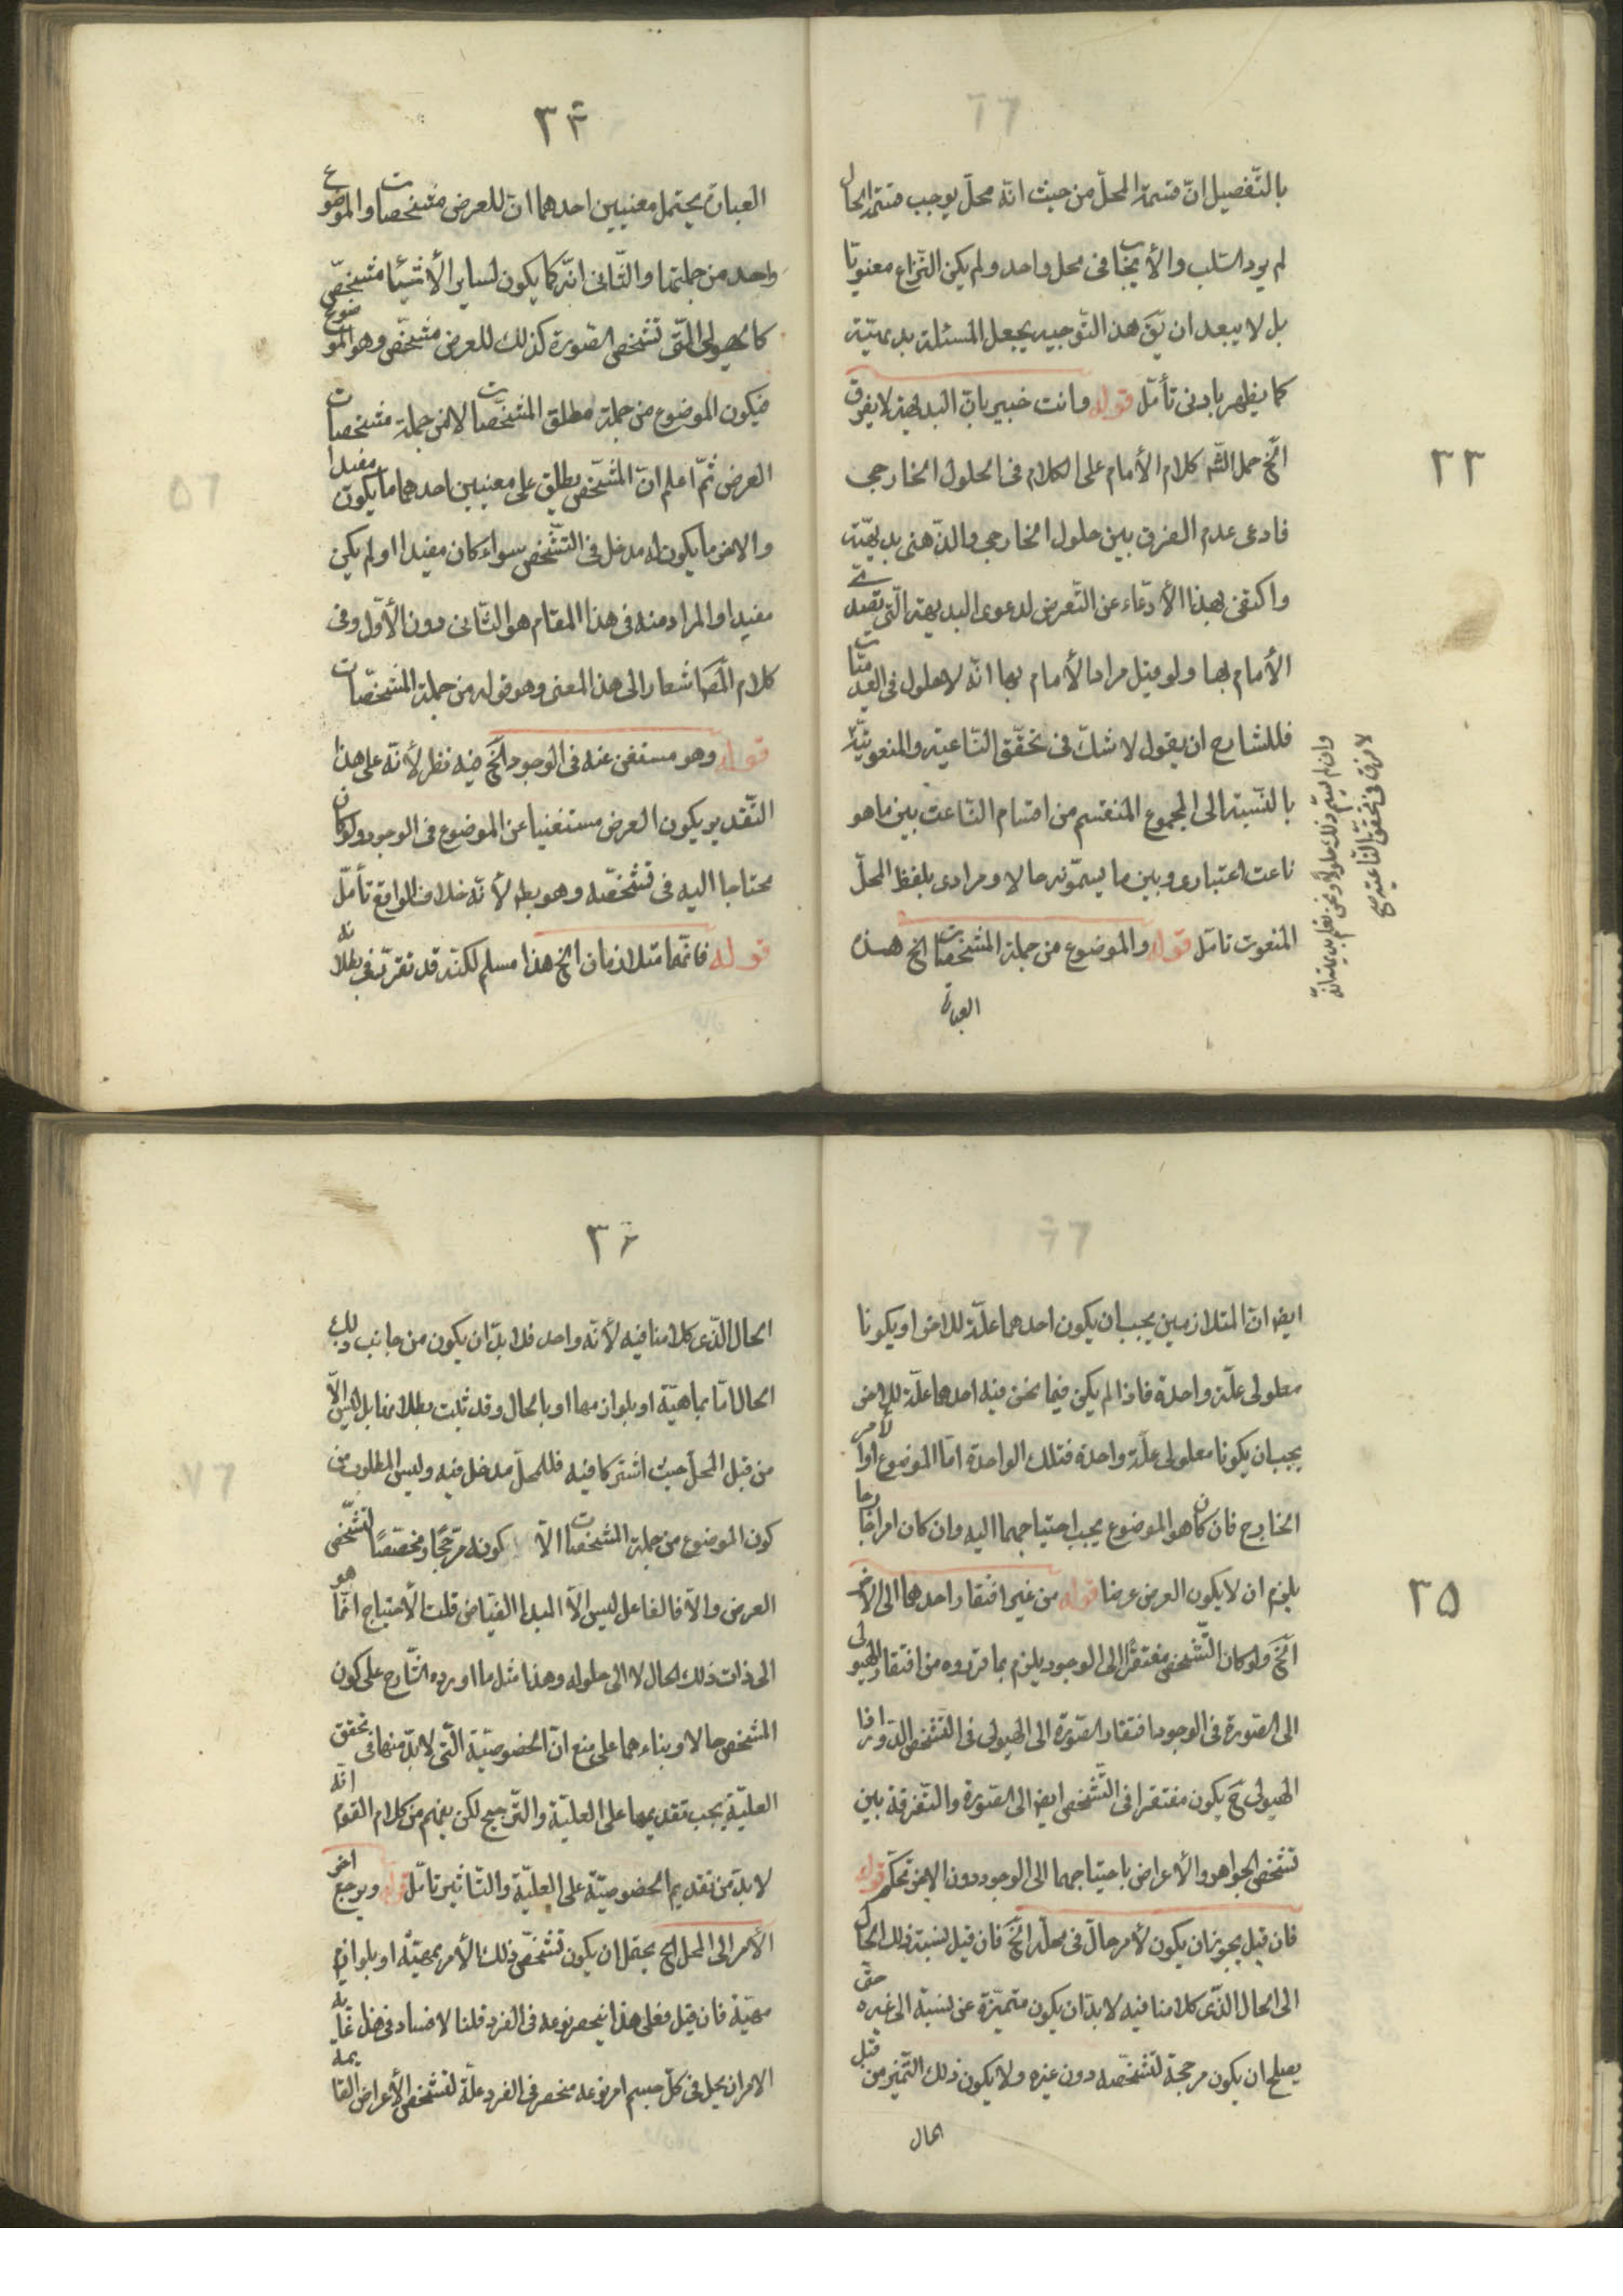 بالتّفصيل انّ قسمة المحلّ من حيث انّه محلّ يوجب قسمة الحال
لم يرد السّلب والأيجاب فى محل واحد ولم يكن النّزاع معنويّا
بل لا يبعد ان يقَ هذا التّوجيه يجعل المسئلة بديهيّة
كما يظهر بادنى تأمّل قوله وانت خبير بانّ البديهة لا يفرق
الخ حمل الشّه كلام الأمام على الكلام فى الحلول الخارجى
فادعى عدم الفرق بين حلول الخارجى والذّهنى بديهيّة
واكتفى بهذا الأدّعاء عن التّعرض لدعوى البديهة الّتى
الأمام بها ولو قيل مراد الأمام بها انّه لا حلول فى العدميّات
فللشارح ان يقول لا شكّ فى تحقّق النّاعتيّة والمنعوتيّة
بالنّسبة الى المجموع المنقسم من اقسام النّاعت بين ما هو
ناعت اعتبارى وبين ما يسمّونه حالا ومرادى بلفظ المحلّ
المنعوت تامّل قوله والموضوع من جملة المشخّصات الخ هذه
العبارة
وان لم يسم ذلك حلولا ونحن نعلم بديهة انّه
لا فرق فى تحقّق النّاعتيّة
٣٣
٣٤
العبارة يحتمل معنيين احدهما انّ للعرض مشخصات والموضوع
واحد من جملتها والثّانى انّه كما يكون لساير الأشياء مشخّص
كالهيولى الّتى تشخّص الصّورة كذلك للعرض مشخّص وهو الموضوع
فيكون الموضوع من جملة مطلق المشخّصات لا من جملة مشخصات
العرض ثمّ اعلم انّ المشخّص يطلق على معنيين احدهما ما يكون مفيدا
والاخر ما يكون له مدخل فى التّشخّص سواء كان مفيدا اولم يكن
مفيدا والمراد منه فى هذا المقام هو الثّانى دون الأوّل وفى
كلام المصَ اشعار الى هذا المعنى وهو قوله من جملة المشخّصات
قوله وهو مستغن عنه فى الوجود الخ فيه نظر لأنّه على هذا
التّقدير يكون العرض مستغنيا عن الموضوع فى الوجود ولو كان
محتاجا اليه فى تشخّصه وهو بط لأنّه خلاف الواقع تأمّل
قوله فانّهما متلازمان الخ هذا مسلم لكنّه قد تقرّر فى بطلانه
ايضا انّ المتلازمين يجب ان يكون احدهما علّة للاخر او يكونا
معلولى علّة واحدة فاذا لم يكن فيما نحن فيه احدهما علّة للاخر
يجب ان يكونا معلولى علّة واحدة فتلك الواحدة امّا الموضوع او الأمر
الخارج فان كان هو الموضوع يجب احتياجهما اليه وان كان امرا خارجا
يلزم ان لا يكون العرض عرضا قوله من غير افتقار احدهما الى الاخر
الخَ ولو كان التّشخص مفتقرا الى الوجود يلزم بما قرّروه من افتقار الهيولى
الى الصّورة فى الوجود افتقار الصّورة الى الهيولى فى التّشخّص الدّور اذا
الهيولى حَ يكون مفتقرا فى التّشخّص ايضا الى الصّورة والتّفرقة بين
تشخّص الجواهر والأعراض باحتياجهما الى الوجود دون الاخر تحكّم قوله
فان قيل يجوز ان يكون لأمر حالّ فى محلّه الخَ فان قيل نسبة ذلك الحال
الى الحال الّذى كلامنا فيه لا بدّ ان يكون متميّزة عن نسبة الى غيره حتى
يصلح ان يكون مرجحة لتشخّصه دون غيره ولا يكون ذلك التّميّز من قبل
الحال
٣٥
٣٦
الحال الّذى كلامنا فيه لأنّه واحد فلا بدّ ان يكون من جانب ذلك
الحال امّا بماهيّة او بلوازمها او بالحال وقد ثبت بطلانه ليس الّا
من قبل المحلّ حيث اشتركا فيه فللمحلّ مدخل فيه وليس المطلوب من
كون الموضوع من جملة المشخّصات الّا كونه مرجّحا ومخصّصا لتشخّص
العرض والّا فالفاعل ليس الّا المبدا الفيّاض قلت الأحتياج انّما هو
الى ذات ذلك الحال لا الى حلوله وهذا مثل ما اورده الشّارح على كون
المشخص حالا وبناءهما على منع انّ الخصوصيّة الّتى لا بدّ منها فى تحقق
العليّة يجب تقديمها على العليّة والتّرجيح لكن يفهم من كلام القوم انّه
لا بدّ من تقديم الخصوصيّة على العليّة والتّاثير تامّل قوله ويرجع اخر
الأمر الى المحل الخ يحتمل ان يكون تشخّص ذلك الأمر بمهيّته او بلوازم
مهيّة فان قيل فعلى هذا ينحصر نوعه فى الفرد قلنا لا فساد فى ذلك غاية
الامر ان يحل فى كلّ جسم امر نوعه منحصر فى الفرد علّة لتشخّص الأعراض القايمة